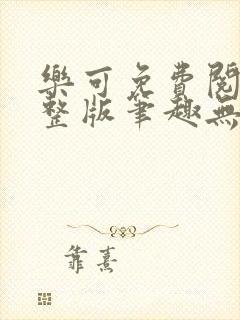 樂可免費閱
整版筆趣無
靠熹